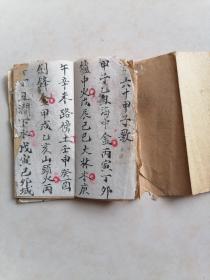 六十甲子歌
甲子乙丑海中金丙寅丁卯
爐中火戊辰己巳大林木庚
午辛未路傍土壬申癸酉
劍鋒金甲戌乙亥山頭火丙
子丁丑澗下水戊寅己卯城